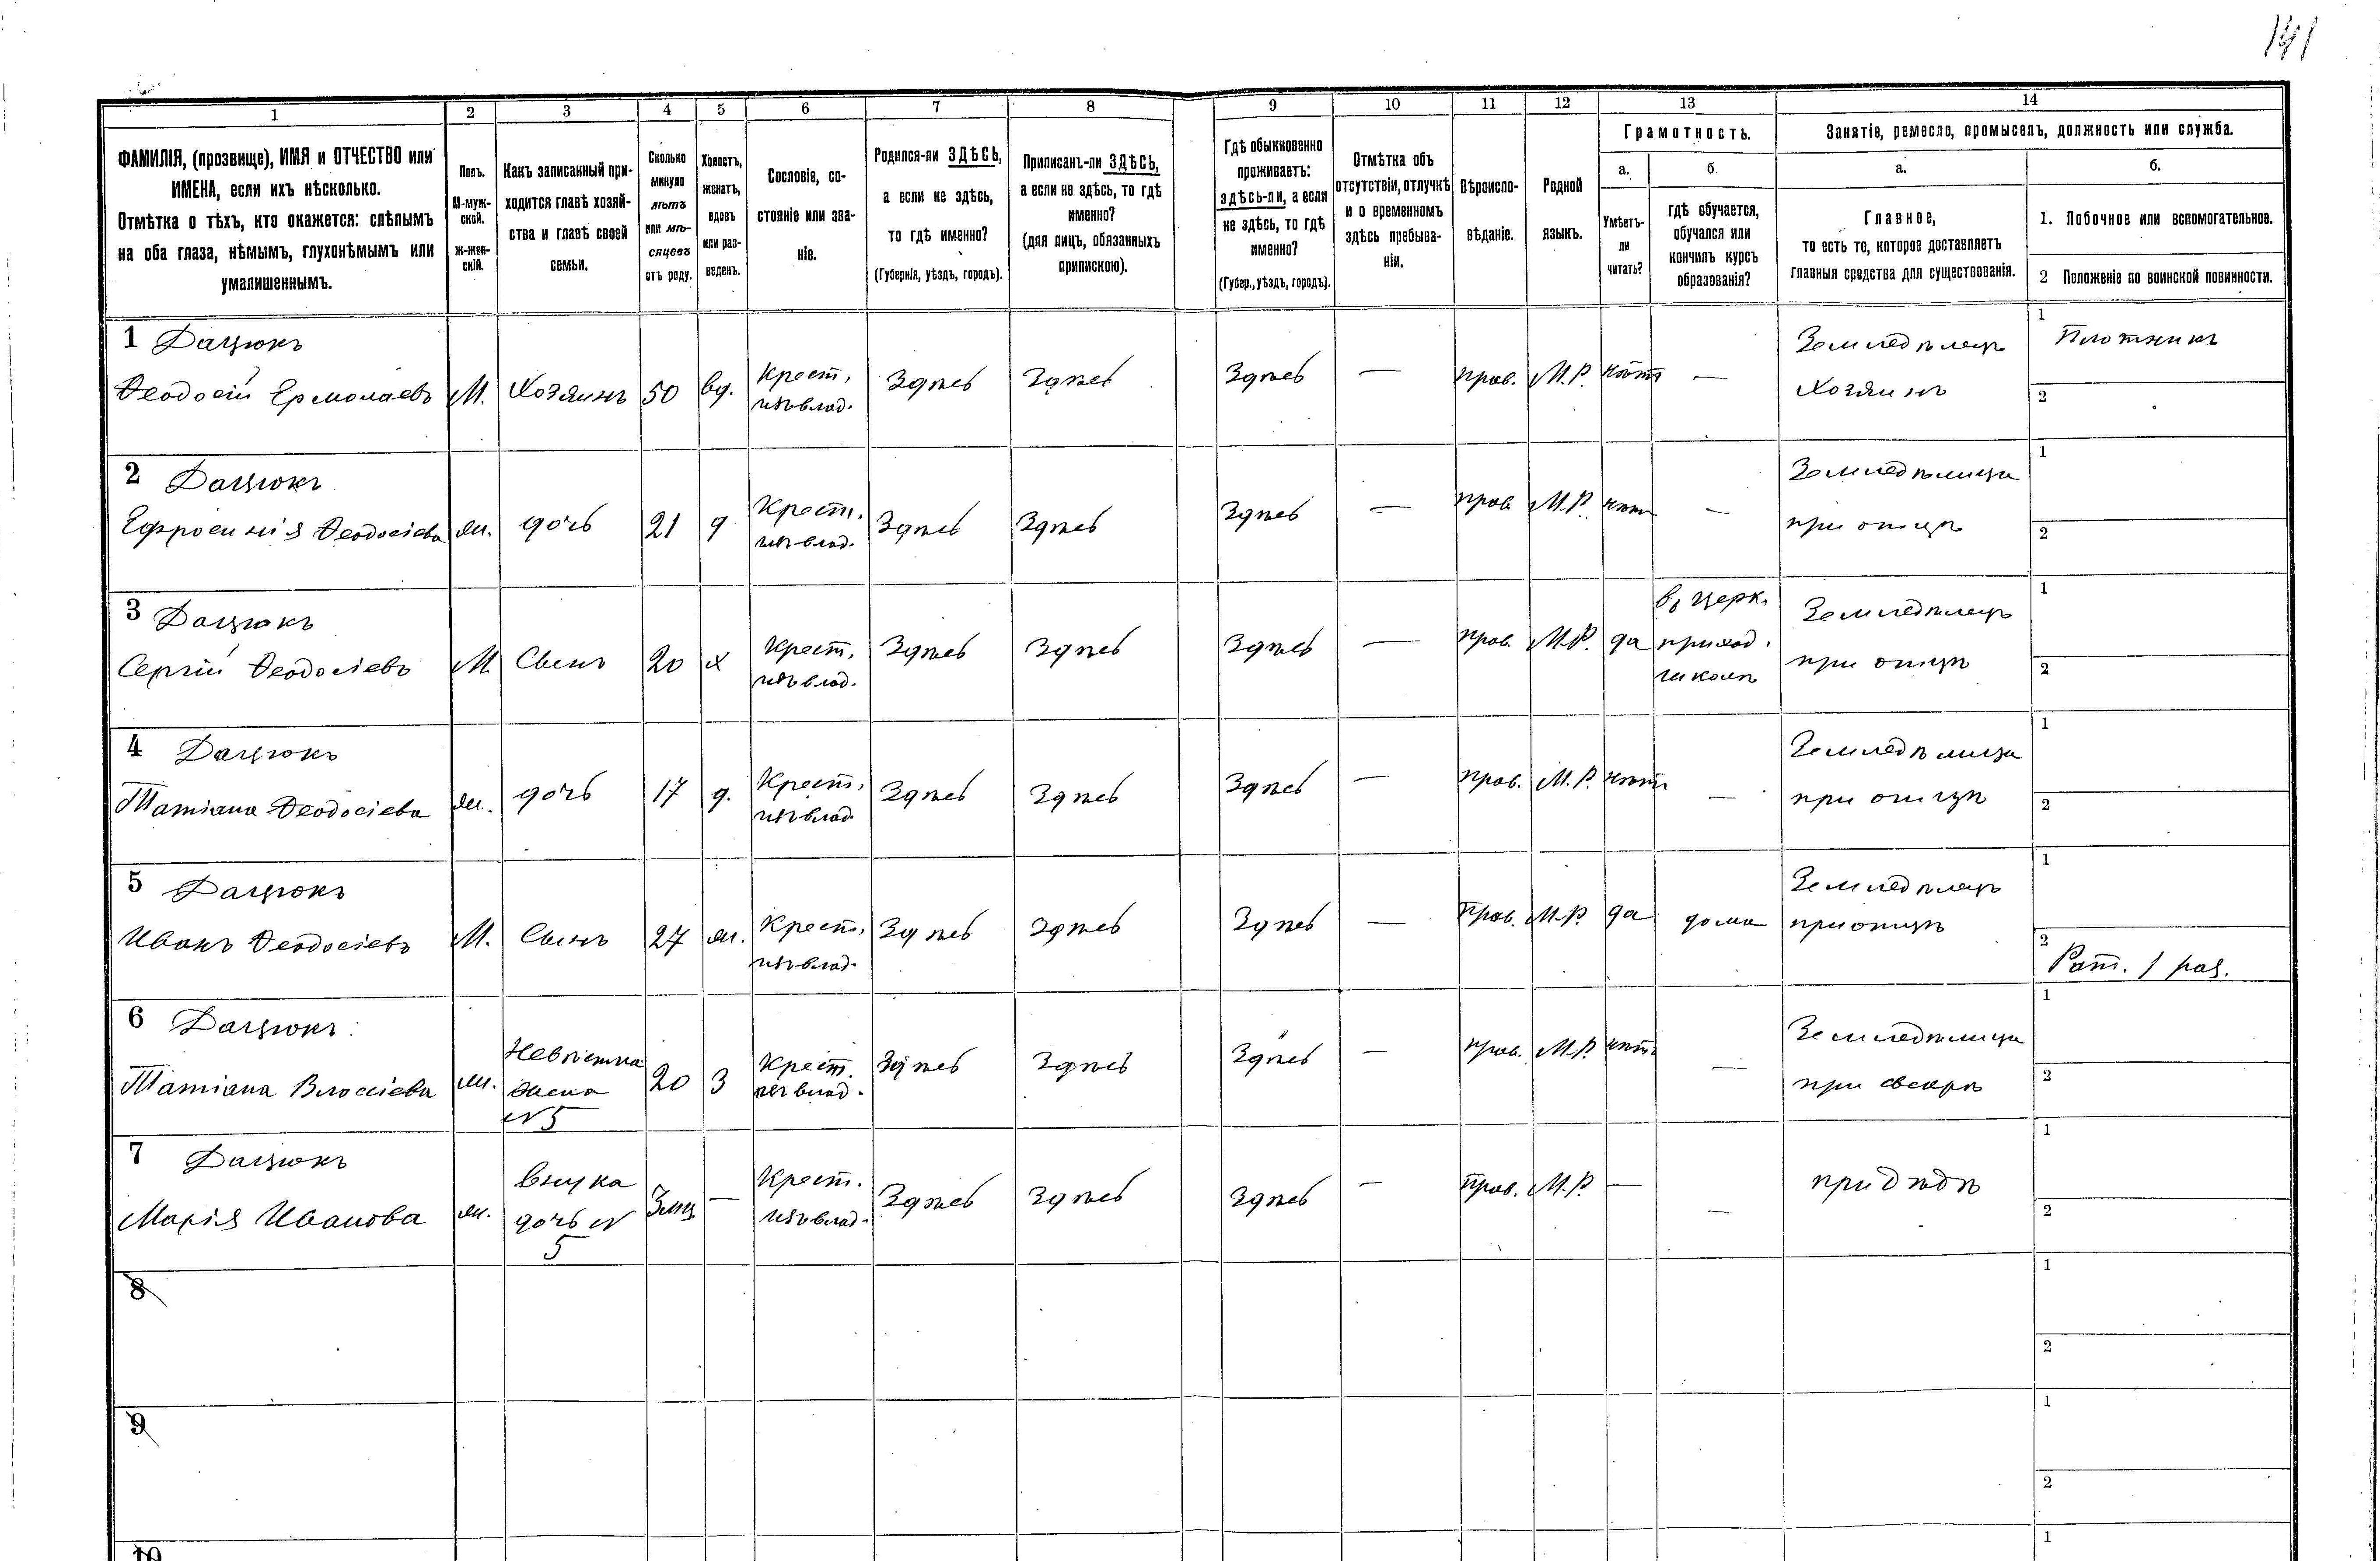 141
1
2
3
4
5
6
7
8
9
10
11
12
13
14
ФАМИЛІЯ, (прозвище), ИМЯ и ОТЧЕСТВО или
ИМЕНА, если ихъ нѣсколько.
Отмѣтка о тѣхъ, кто окажется: слѣпымъ
на оба глаза, нѣмымъ, глухонѣмымъ или
умалишеннымъ.
Полъ.
М-муж-
ской.
ж-жен-
скій.
Какъ записанный при-
ходится главѣ хозяй-
ства и главѣ своей
семьи.
Сколько
минуло
лѣтъ
или мѣ-
сяцевъ
отъ роду.
Холостъ,
женатъ,
вдовъ
или раз-
веденъ.
Сословіе, со-
стояніе или зва-
ніе.
Родился-ли ЗДѢСЬ,
а если не здѣсь,
то гдѣ именно?
(Губернія, уѣздъ, городъ).
Приписанъ-ли ЗДѢСЬ,
а если не здѣсь, то гдѣ
именно?
(для лицъ, обязанныхъ
припискою).
Гдѣ обыкновенно
проживаетъ:
здѣсь-ли, а если
не здѣсь, то гдѣ
именно?
(Губер., уѣздъ, городъ).
Отмѣтка объ
отсутствіи, отлучкѣ
и о временномъ
здѣсь пребыва-
ніи.
Вѣроиспо-
вѣданіе.
Родной
языкъ.
Грамотность.
а.
Умѣетъ-
ли
читать?
б.
гдѣ обучается,
обучался или
кончилъ курсъ
образованія?
Занятіе, ремесло, промыселъ, должность или служба.
а.
Главное,
то есть то, которое доставляетъ
главныя средства для существованія.
б.
1. Побочное или вспомогательное.
2 Положеніе по воинской повинности.
1 Дацюкъ
Ѳеодосій Ермолаевъ
М.
Хозяинъ
50
вд.
Крест,
изъ влад.
Здѣсь
Здѣсь
Здѣсь
—
прав.
М.Р.
нѣтъ
—
Земледѣлецъ
Хозяинъ
1
Плотникъ
2
2 Дацюкъ
Ефросинія Ѳеодосіева
ж.
дочь
21
д
Крест.
изъ влад.
Здѣсь
Здѣсь
Здѣсь
—
прав
М.Р.
нѣт
—
Земледѣлица
при отцѣ
1
2
3 Дацюкъ
Сергій Ѳеодосіевъ
М.
Сынъ
20
х
Крест.
изъ влад.
Здѣсь
Здѣсь
Здѣсь
—
прав.
М.Р.
да
въ церк.
приход.
школѣ
Земледѣлецъ
при отцѣ
1
2
4 Дацюкъ
Татіана Ѳеодосіева
ж.
дочь
17
д.
Крест.
изъ влад
Здѣсь
Здѣсь
Здѣсь
—
прав.
М.Р.
нѣтъ
—
Земледѣлица
при отцѣ
1
2
5 Дацюкъ
Иванъ Ѳеодосіевъ
М.
Сынъ
27
ж.
Крест,
изъ влад.
Здѣсь
Здѣсь
Здѣсь
—
Прав.
М.Р.
да
дома
Земледѣлецъ
при отцѣ
1
2
Рат. 1 раз.
6 Дацюкъ
Татіана Власіева
ж.
Невѣстка
жена
№5
20
З
Крест.
изъ влад.
Здѣсь
Здѣсь
Здѣсь
—
прав.
М.Р.
нѣтъ
—
Земледѣлица
при свекрѣ
1
2
7 Дацюкъ
Марія Иванова
ж.
внучка
дочь №
5
3мц
—
Крест.
изъ влад.
Здѣсь
Здѣсь
Здѣсь
—
Прав.
М.Р.
—
—
при дѣдѣ
1
2
8
1
2
9
1
2
10
1